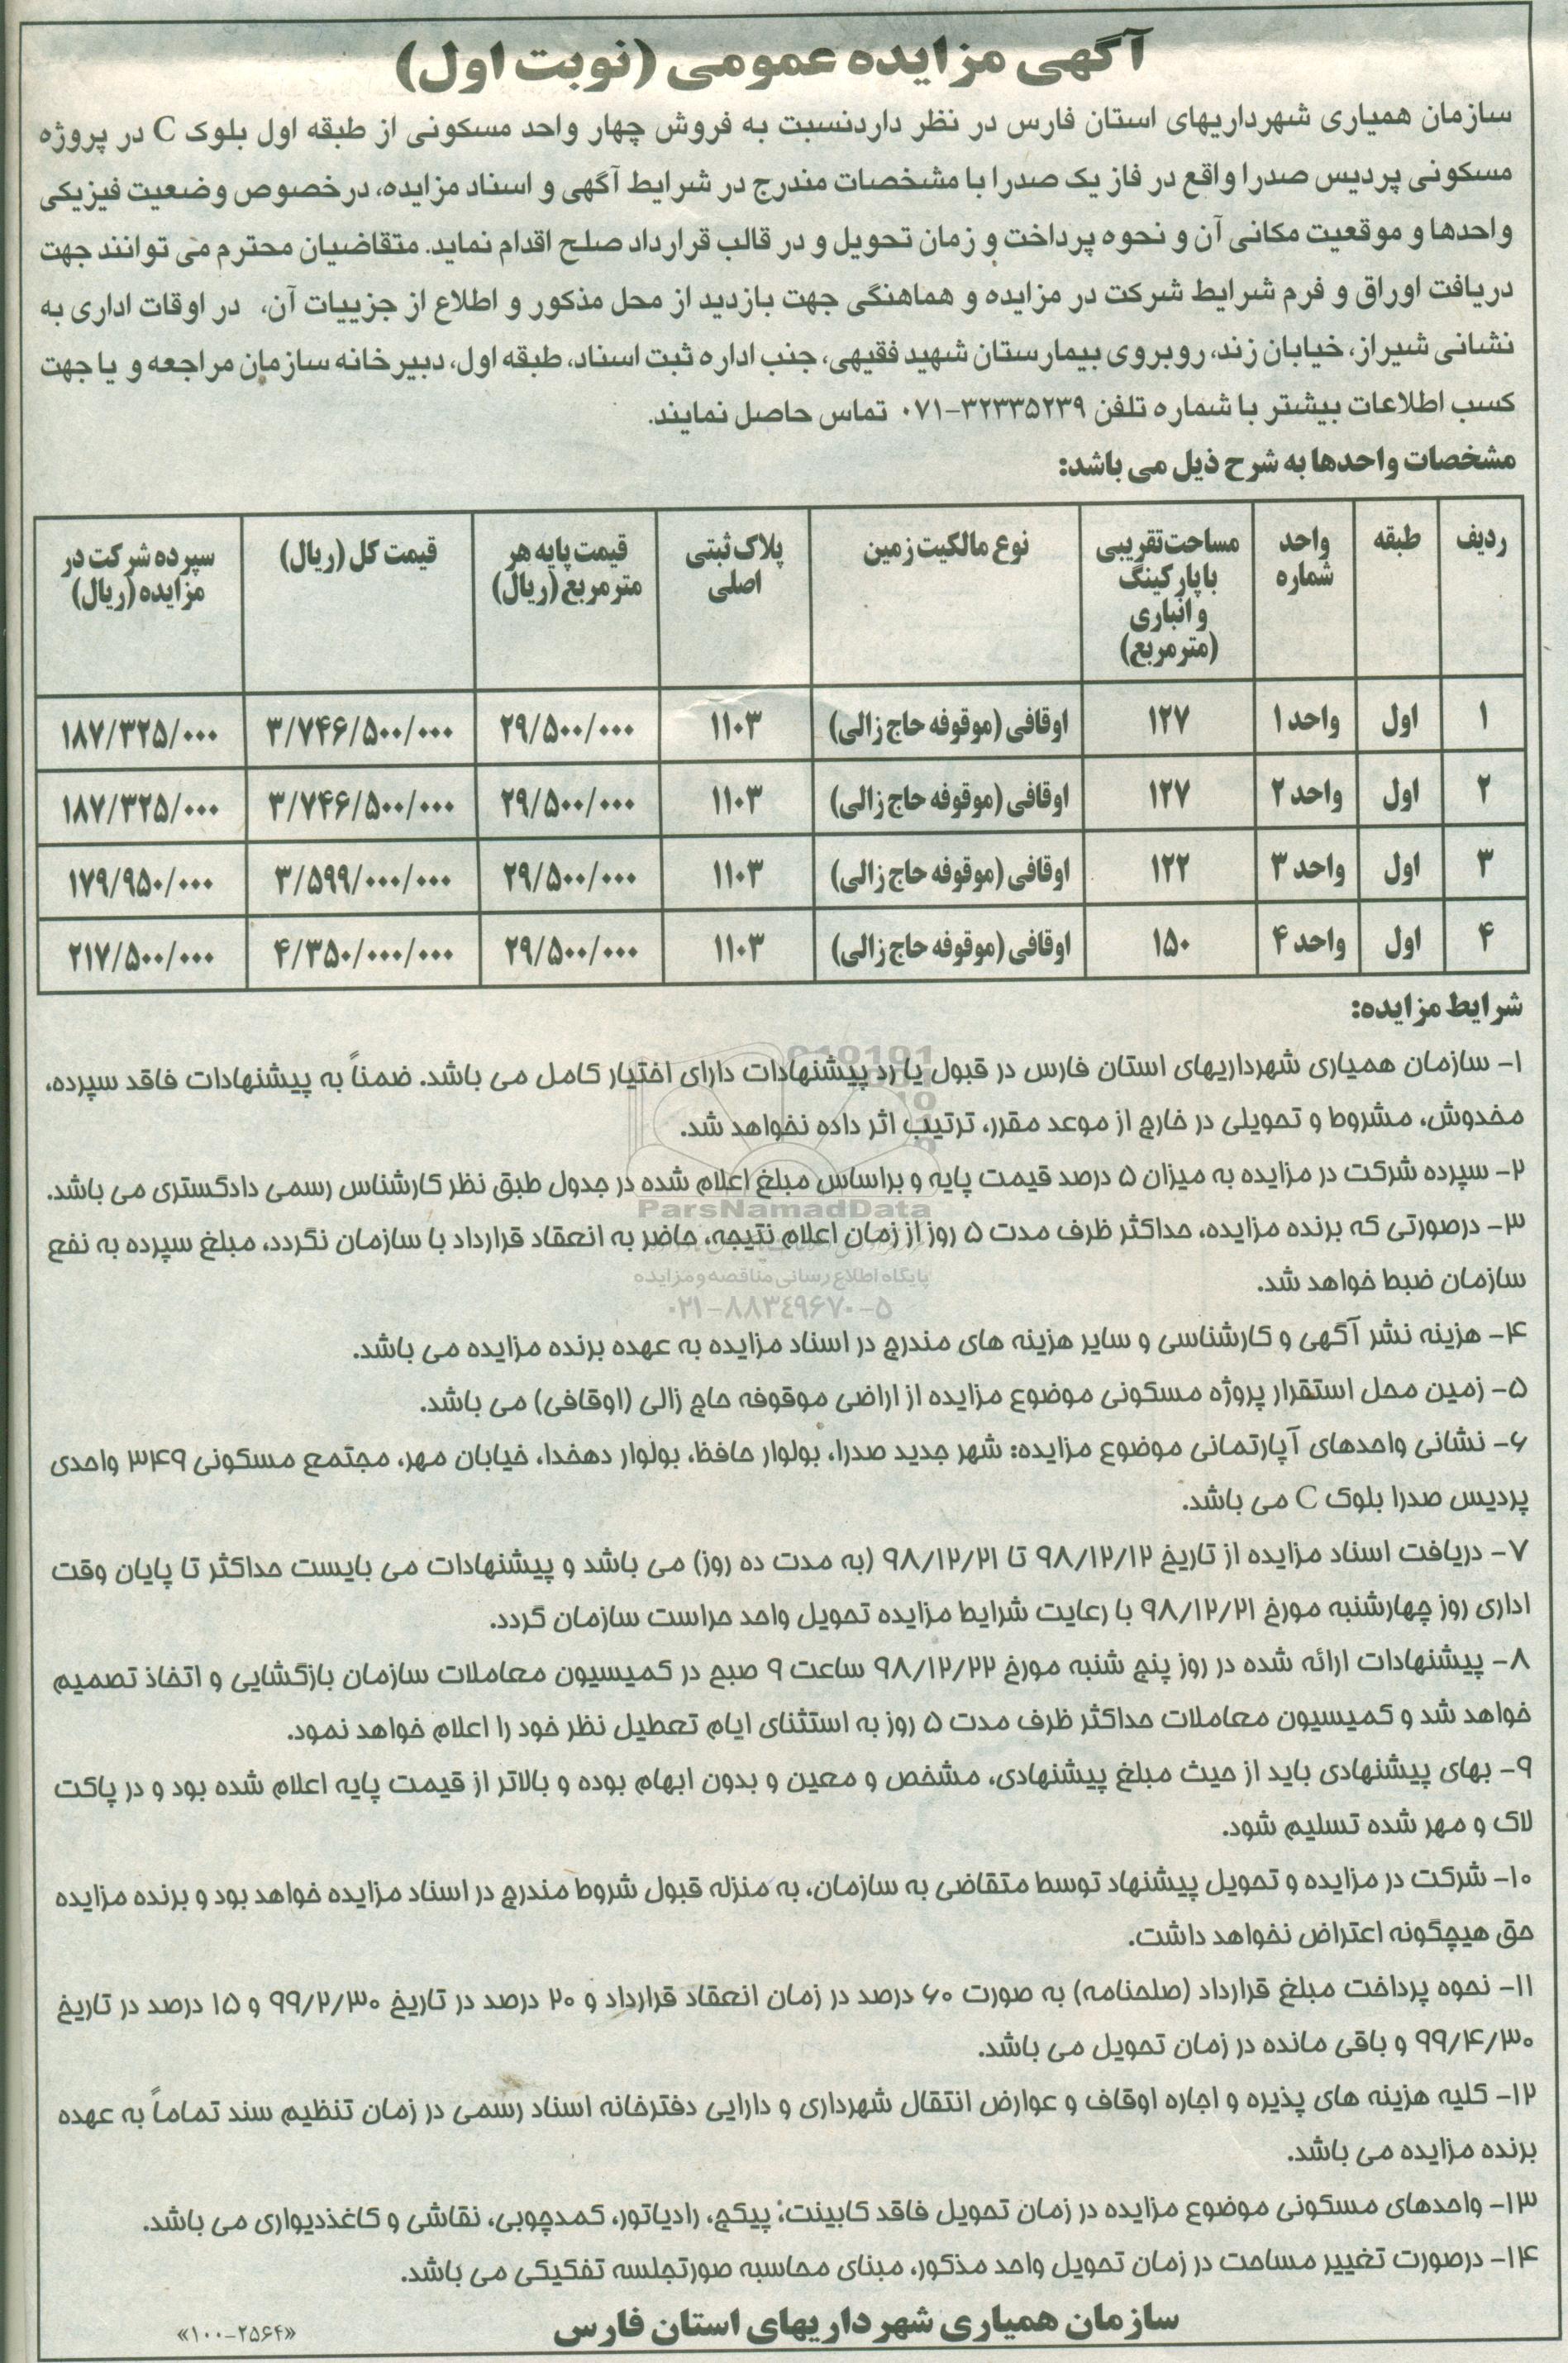 آگهی مزایده عمومی (نوبت اول)
سازمان همیاری شهرداریهای استان فارس در نظر داردنسبت به فروش چهار واحد مسکونی از طبقه اول بلوک C در پروژه
مسکونی پردیس صدرا واقع در فاز یک صدرا با مشخصات مندرج در شرایط آگهی و اسناد مزایده، درخصوص وضعیت فیزیکی
واحدها و موقعیت مکانی آن و نحوه پرداخت و زمان تحویل و در قالب قرارداد صلح اقدام نماید. متقاضیان محترم می توانند جهت
دریافت اوراق و فرم شرایط شرکت در مزایده و هماهنگی جهت بازدید از محل مذکور و اطلاع از جزییات آن، در اوقات اداری به
نشانی شیراز، خیابان زند، روبروی بیمارستان شهید فقیهی، جنب اداره ثبت اسناد، طبقه اول، دبیرخانه سازمان مراجعه و یا جهت
کسب اطلاعات بیشتر با شماره تلفن ۳۲۳۳۵۲۳۹-۰۷۱ تماس حاصل نمایند.
مشخصات واحدها به شرح ذیل می باشد:
ردیف طبقه واحد شماره مساحت تقریبی با پارکینگ و انباری (مترمربع) نوع مالکیت زمین پلاک ثبتی اصلی قیمت پایه هر مترمربع (ریال) قیمت کل (ریال) سپرده شرکت در مزایده (ریال)
۱ اول واحد ۱ ۱۲۷ اوقافی (موقوفه حاج زالی) ۱۱۰۳ ۲۹/۵۰۰/۰۰۰ ۳/۷۴۶/۵۰۰/۰۰۰ ۱۸۷/۳۲۵/۰۰۰
۲ اول واحد ۲ ۱۲۷ اوقافی (موقوفه حاج زالی) ۱۱۰۳ ۲۹/۵۰۰/۰۰۰ ۳/۷۴۶/۵۰۰/۰۰۰ ۱۸۷/۳۲۵/۰۰۰
۳ اول واحد ۳ ۱۲۲ اوقافی (موقوفه حاج زالی) ۱۱۰۳ ۲۹/۵۰۰/۰۰۰ ۳/۵۹۹/۰۰۰/۰۰۰ ۱۷۹/۹۵۰/۰۰۰
۴ اول واحد ۴ ۱۵۰ اوقافی (موقوفه حاج زالی) ۱۱۰۳ ۲۹/۵۰۰/۰۰۰ ۴/۳۵۰/۰۰۰/۰۰۰ ۲۱۷/۵۰۰/۰۰۰
شرایط مزایده:
۱- سازمان همیاری شهرداریهای استان فارس در قبول یا رد پیشنهادات دارای اختیار کامل می باشد. ضمناً به پیشنهادات فاقد سپرده،
مخدوش، مشروط و تحویلی در خارج از موعد مقرر، ترتیب اثر داده نخواهد شد.
۲- سپرده شرکت در مزایده به میزان ۵ درصد قیمت پایه و براساس مبلغ اعلام شده در جدول طبق نظر کارشناس رسمی دادگستری می باشد.
ParsNamadData
۳- درصورتی که برنده مزایده، حداکثر ظرف مدت ۵ روز از زمان اعلام نتیجه، حاضر به انعقاد قرارداد با سازمان نگردد، مبلغ سپرده به نفع
سازمان ضبط خواهد شد.
پایگاه اطلاع رسانی مناقصه و مزایده
۰۲۱-۸۸۳۴۹۶۷۰-۵
۴- هزینه نشر آگهی و کارشناسی و سایر هزینه های مندرج در اسناد مزایده به عهده برنده مزایده می باشد.
۵- زمین محل استقرار پروژه مسکونی موضوع مزایده از اراضی موقوفه حاج زالی (اوقافی) می باشد.
۶- نشانی واحدهای آپارتمانی موضوع مزایده: شهر جدید صدرا، بولوار حافظ، بولوار دهخدا، خیابان مهر، مجتمع مسکونی ۳۴۹ واحدی
پردیس صدرا بلوک C می باشد.
۷- دریافت اسناد مزایده از تاریخ ۹۸/۱۲/۱۲ تا ۹۸/۱۲/۲۱ (به مدت ده روز) می باشد و پیشنهادات می بایست حداکثر تا پایان وقت
اداری روز چهارشنبه مورخ ۹۸/۱۲/۲۱ با رعایت شرایط مزایده تحویل واحد حراست سازمان گردد.
۸- پیشنهادات ارائه شده در روز پنج شنبه مورخ ۹۸/۱۲/۲۲ ساعت ۹ صبح در کمیسیون معاملات سازمان بازگشایی و اتخاذ تصمیم
خواهد شد و کمیسیون معاملات حداکثر ظرف مدت ۵ روز به استثنای ایام تعطیل نظر خود را اعلام خواهد نمود.
۹- بهای پیشنهادی باید از حیث مبلغ پیشنهادی، مشخص و معین و بدون ابهام بوده و بالاتر از قیمت پایه اعلام شده بود و در پاکت
لاک و مهر شده تسلیم شود.
۱۰- شرکت در مزایده و تحویل پیشنهاد توسط متقاضی به سازمان، به منزله قبول شروط مندرج در اسناد مزایده خواهد بود و برنده مزایده
حق هیچگونه اعتراض نخواهد داشت.
۱۱- نحوه پرداخت مبلغ قرارداد (صلحنامه) به صورت ۶۰ درصد در زمان انعقاد قرارداد و ۲۰ درصد در تاریخ ۹۹/۲/۳۰ و ۱۵ درصد در تاریخ
۹۹/۴/۳۰ و باقی مانده در زمان تحویل می باشد.
۱۲- کلیه هزینه های پذیره و اجاره اوقاف و عوارض انتقال شهرداری و دارایی دفترخانه اسناد رسمی در زمان تنظیم سند تماماً به عهده
برنده مزایده می باشد.
۱۳- واحدهای مسکونی موضوع مزایده در زمان تحویل فاقد کابینت، پیکج، رادیاتور، کمدچوبی، نقاشی و کاغذدیواری می باشد.
۱۴- درصورت تغییر مساحت در زمان تحویل واحد مذکور، مبنای محاسبه صورتجلسه تفکیکی می باشد.
سازمان همیاری شهرداریهای استان فارس
«۱۰۰-۲۵۶۴»